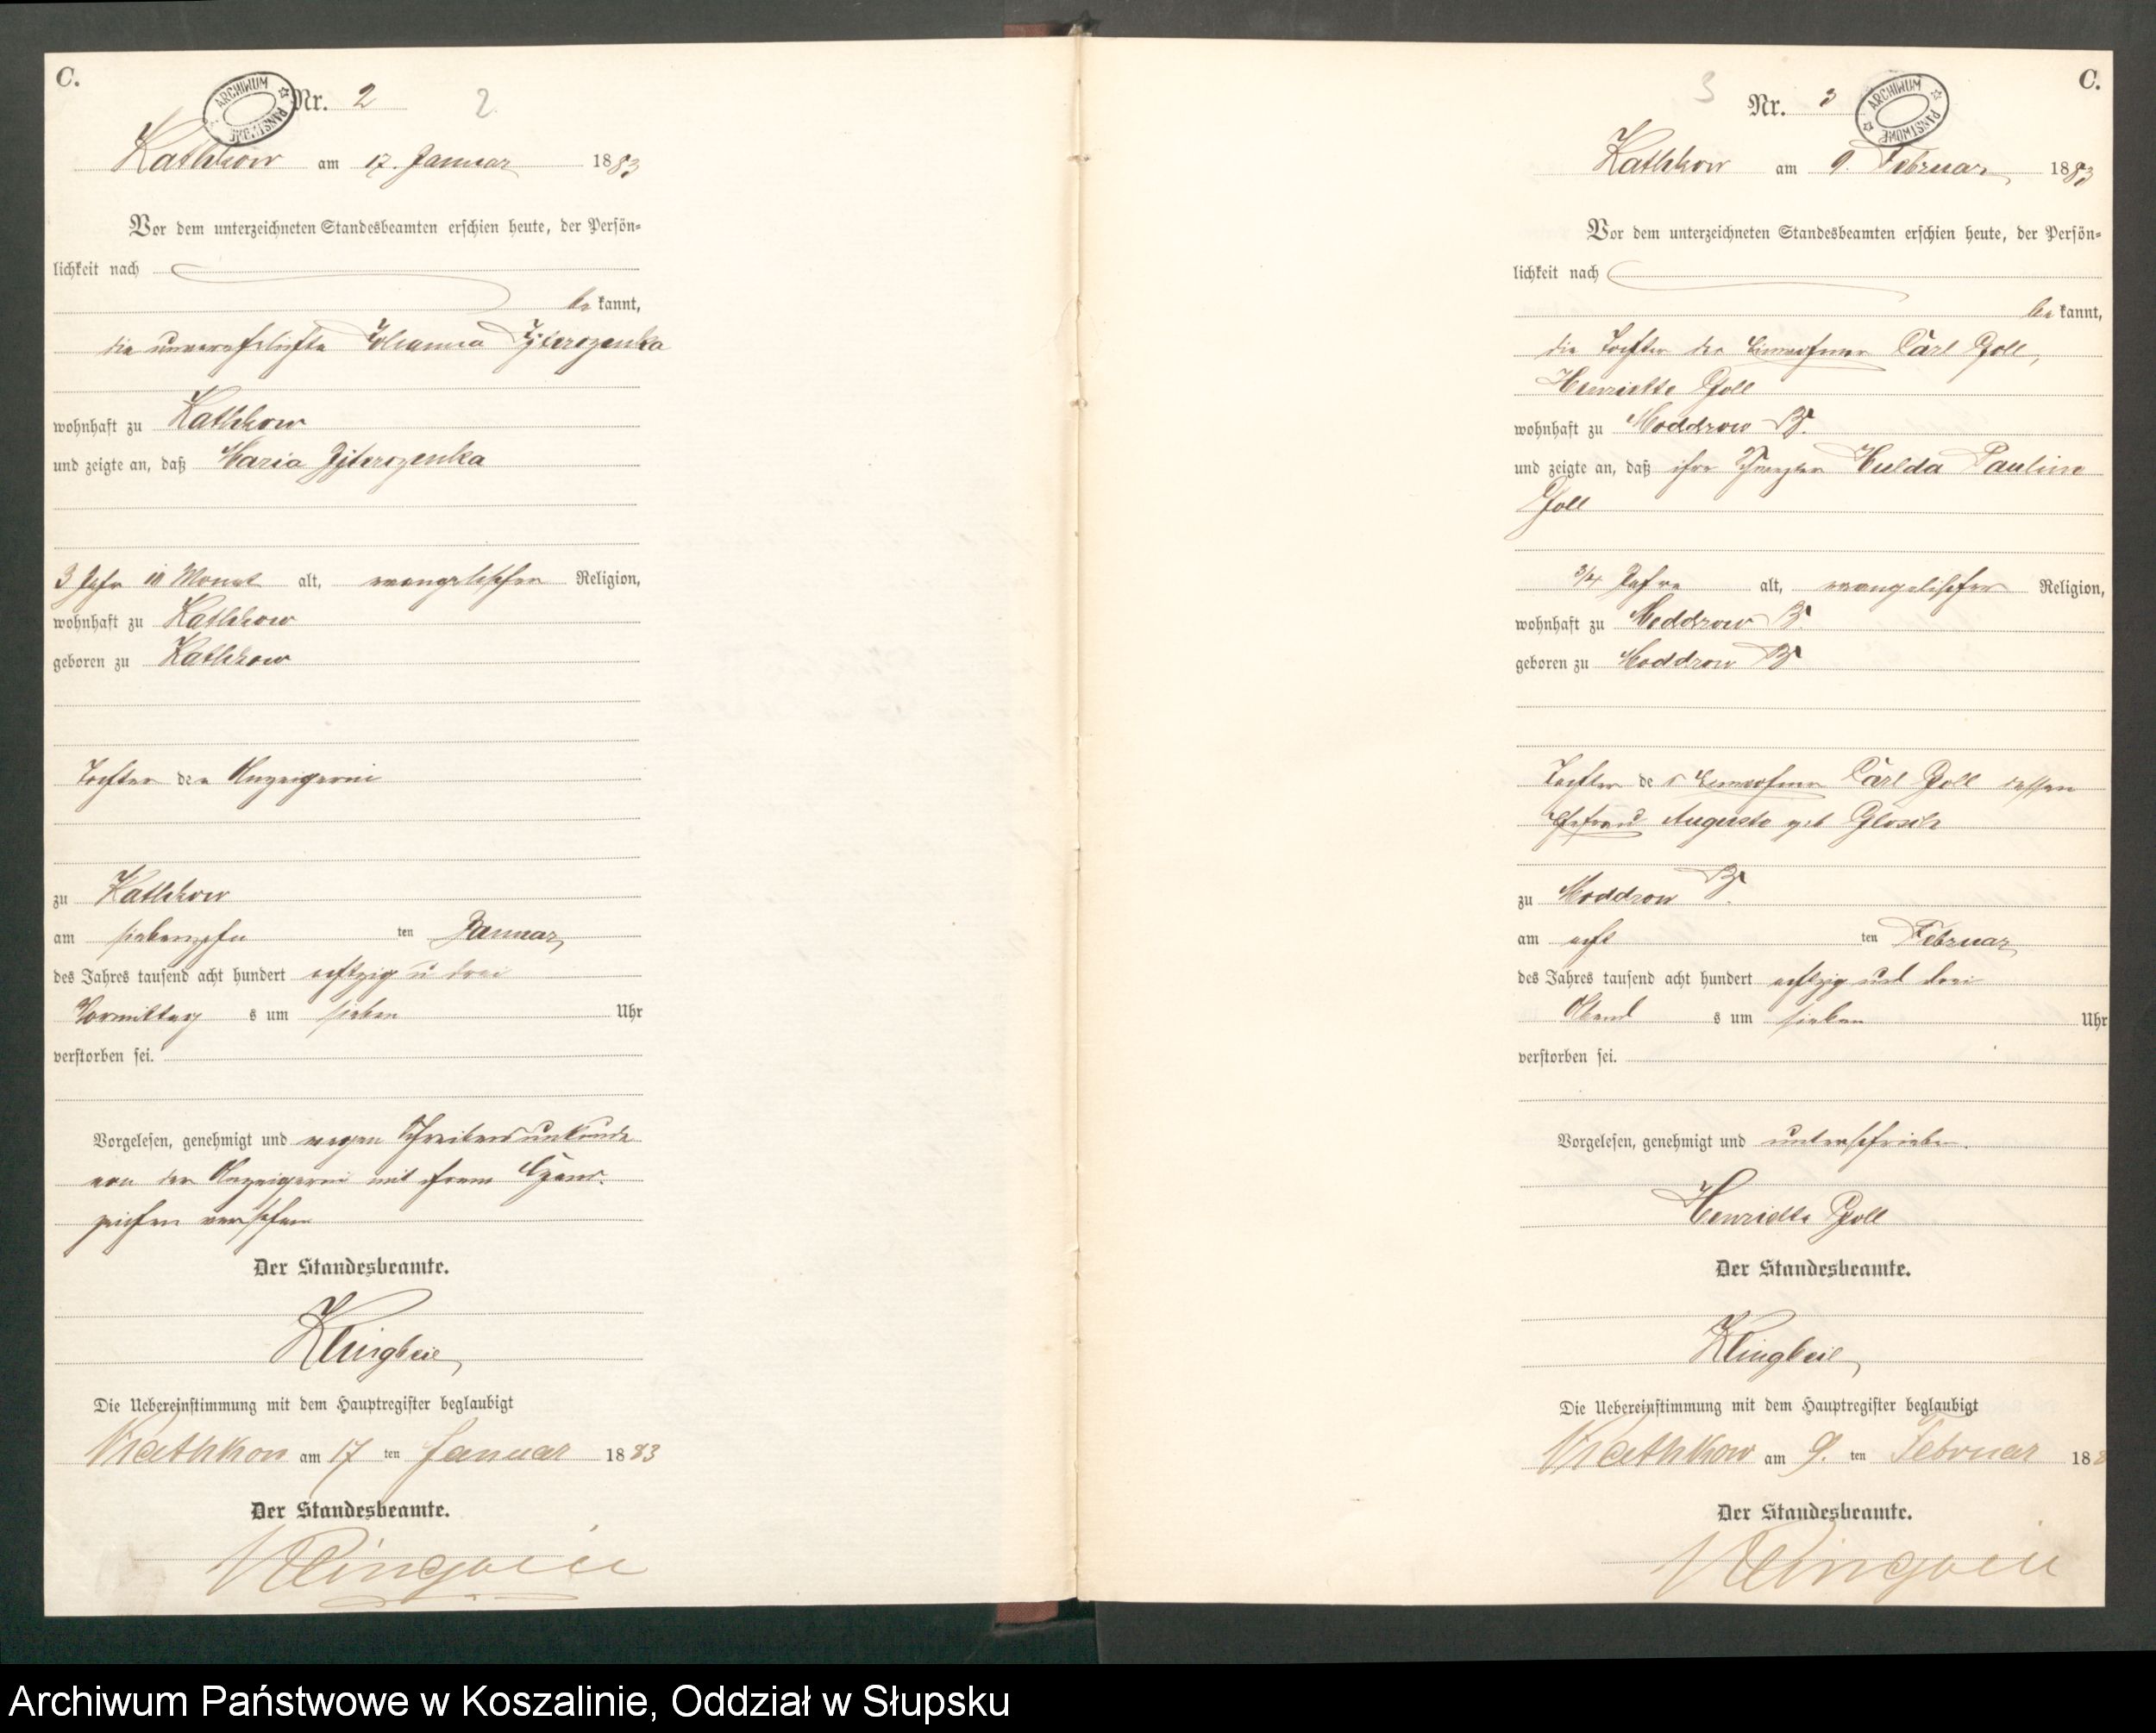 C.
Nr. 2
2.
ARCHIWUM PAŃSTWOWE
Kathkow am 17. Januar 1883
Vor dem unterzeichneten Standesbeamten erschien heute, der Persön=
lichkeit nach
be kannt,
die unverehelichte Johanna
wohnhaft zu Kathkow
und zeigte an, daß Maria
3 Jahr 10 Monat alt, evangelischer Religion,
wohnhaft zu Kathkow
geboren zu Kathkow
Tochter der Anzeigerin
zu Kathkow
am siebenzehn ten Januar
des Jahres tausend acht hundert achtzig u drei
Vormittag s um sieben Uhr
verstorben sei.
Vorgelesen, genehmigt und wegen Schreibensunkunde
von der Anzeigerin mit ihrem
zeichen versehen
Der Standesbeamte.
Klingbeil
Die Uebereinstimmung mit dem Hauptregister beglaubigt
Kathkow am 17 ten Januar 1883
Der Standesbeamte.
Klingbeil
C.
3
Nr. 3
ARCHIWUM PAŃSTWOWE
Kathkow am 9. Februar 1883
Vor dem unterzeichneten Standesbeamten erschien heute, der Persön=
lichkeit nach
be kannt,
die Tochter des Einwohner Carl Goll,
Henriette Goll
wohnhaft zu Moddrow B.
und zeigte an, daß ihre Schwester Hulda Pauline
Goll
3/4 Jahre alt, evangelischer Religion,
wohnhaft zu Moddrow B
geboren zu Moddrow B
Tochter de s Einwohner Carl Goll dessen
Ehefrau Auguste geb
zu Moddrow B.
am acht ten Februar
des Jahres tausend acht hundert achtzig und drei
Abend s um sieben Uhr
verstorben sei.
Vorgelesen, genehmigt und unterschrieben.
Henriette Goll
Der Standesbeamte.
Klingbeil
Die Uebereinstimmung mit dem Hauptregister beglaubigt
Kathkow am 9. ten Februar 188
Der Standesbeamte.
Klingbeil
Archiwum Państwowe w Koszalinie, Oddział w Słupsku